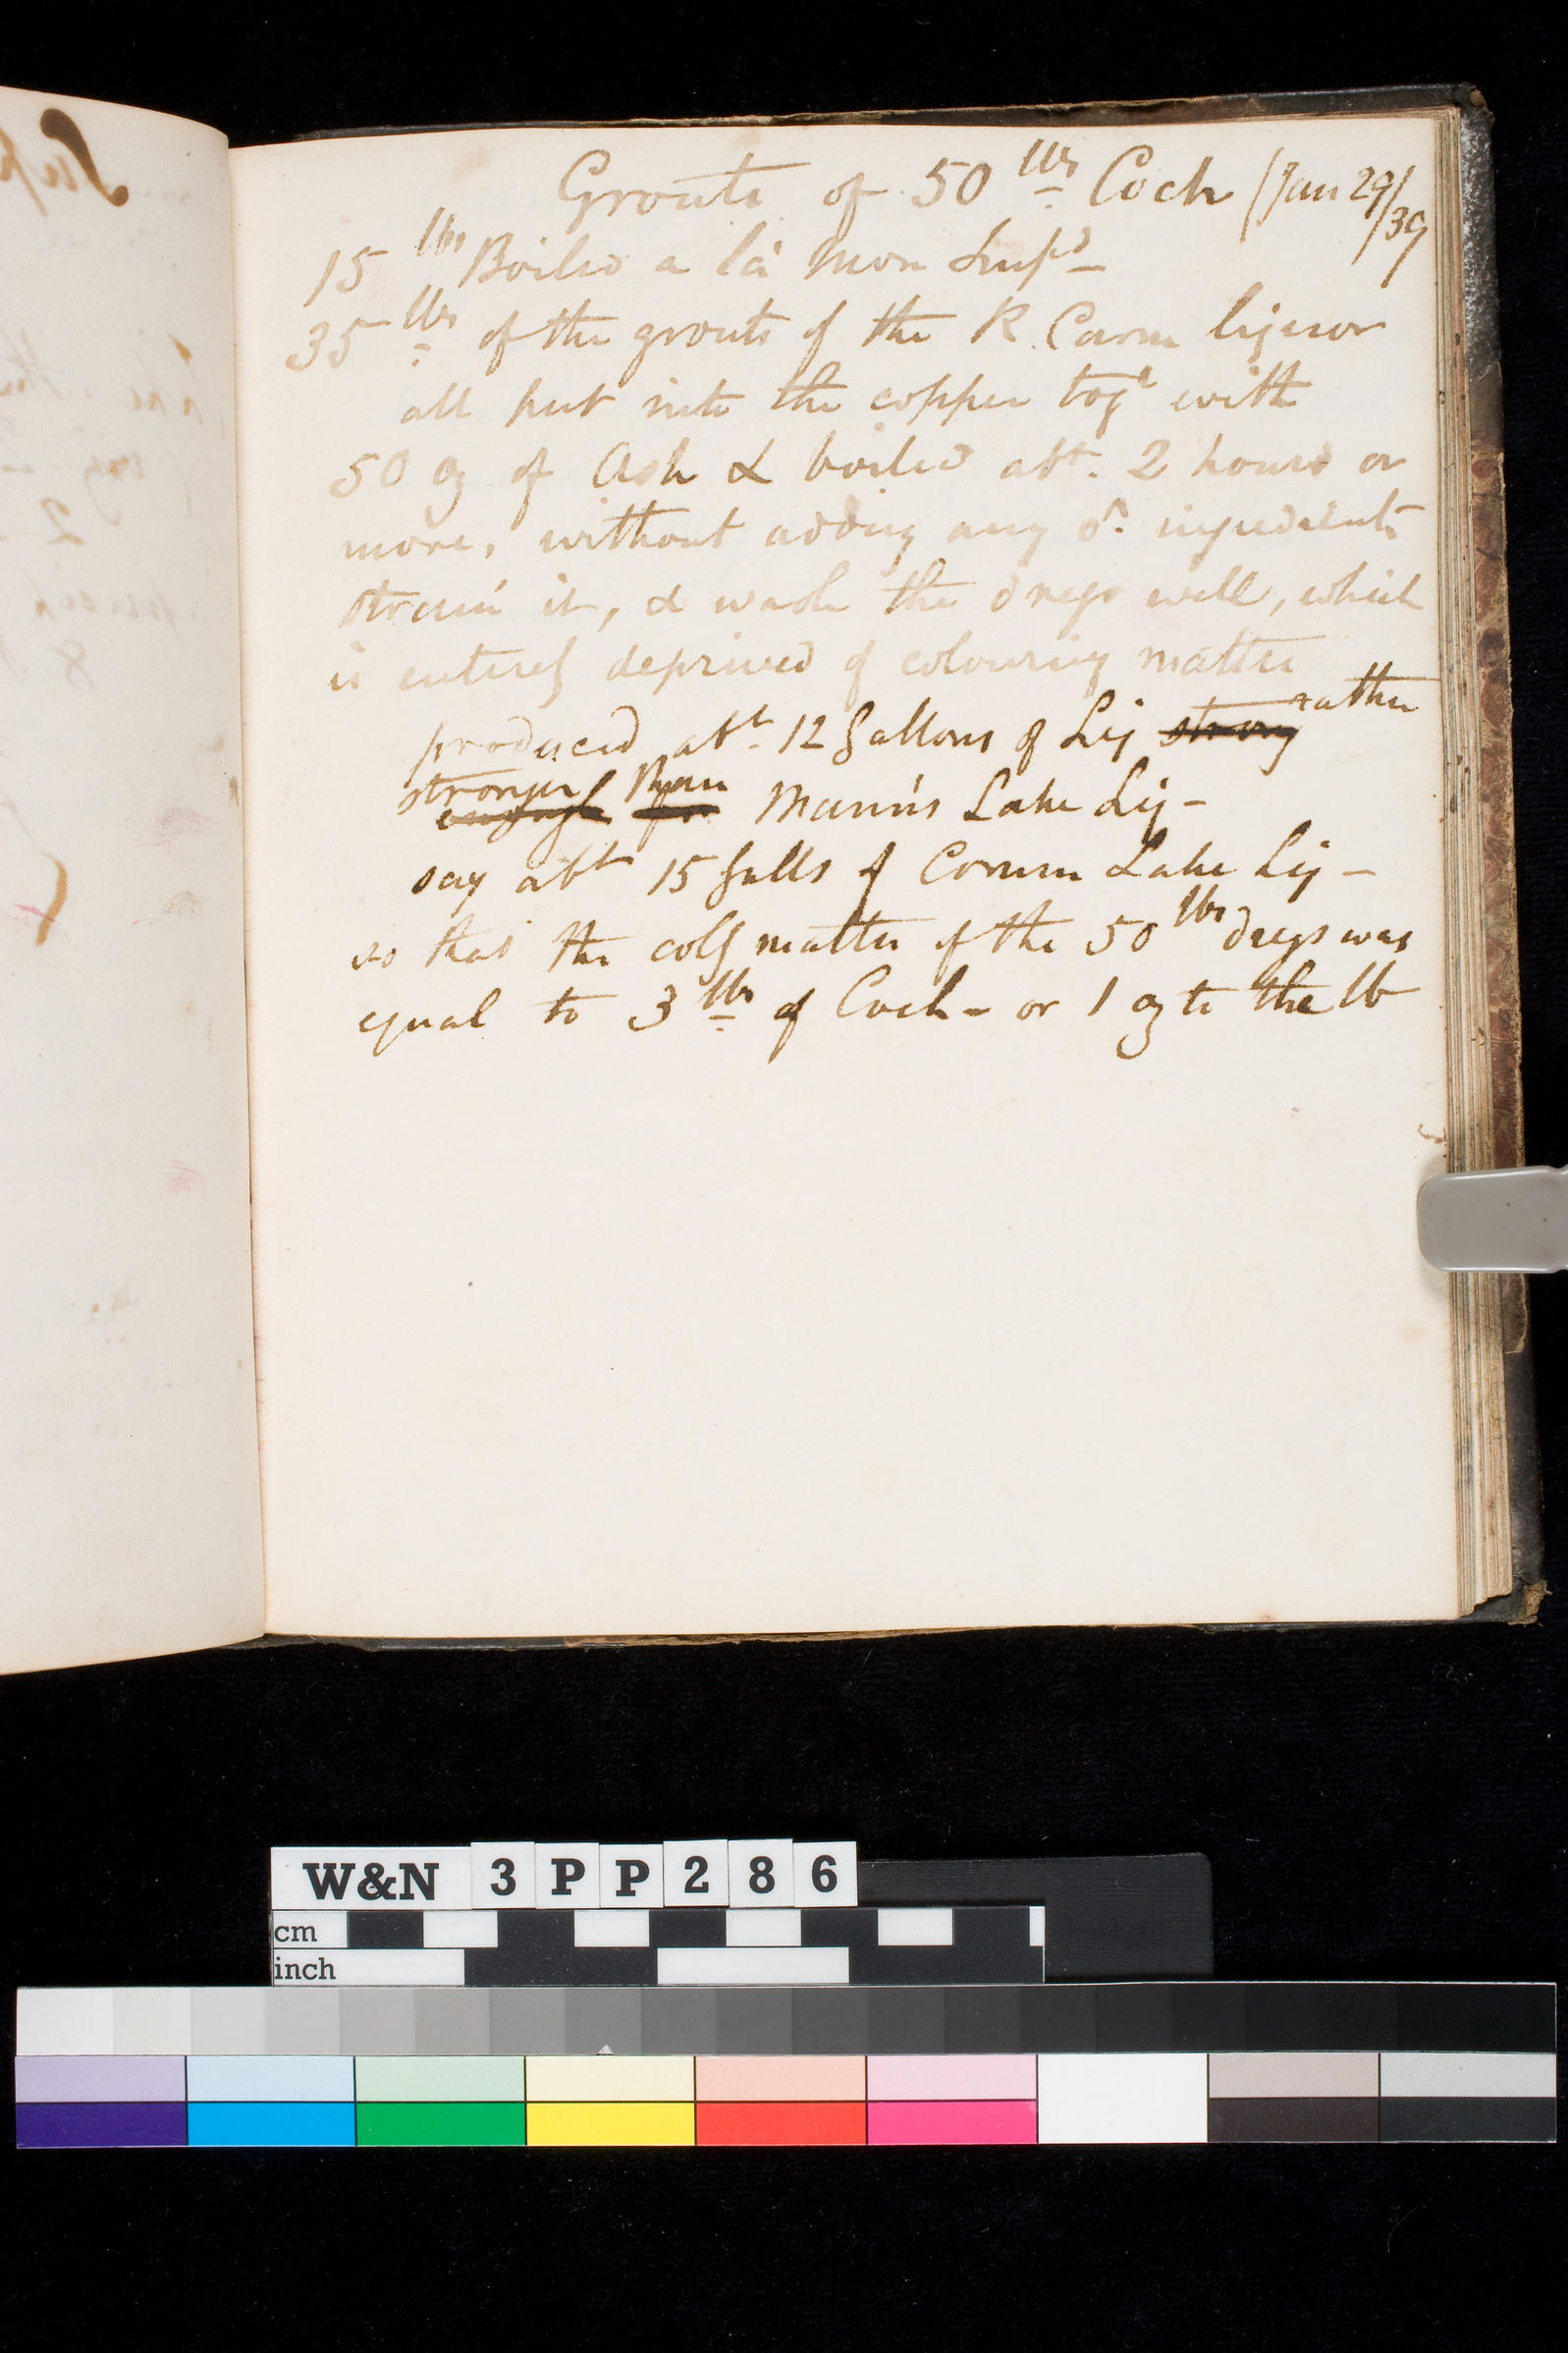 Grouts of 50 lbs Coch (Jan 29/39
15 lbs Boiled a la Mon Supd
35 lbs of the grouts of the R. Carm liquor
all put into the copper togr with
50 oz of Ash & boiled abt. 2 hours or
more, without adding any or. ingredients
strain it, & wash the dregs well, which
is entirely deprived of colouring matter
produced abt. 12 Gallons of Liq strong rather
stronger than
enough for Mann's Lake Liq -
say abt 15 Galls of Comm Lake Liq -
so that the colg matter of the 50 lbs dregs was
equal to 3 lbs of Coch - or 1 oz to the lb
W&N 3PP286
cm
inch